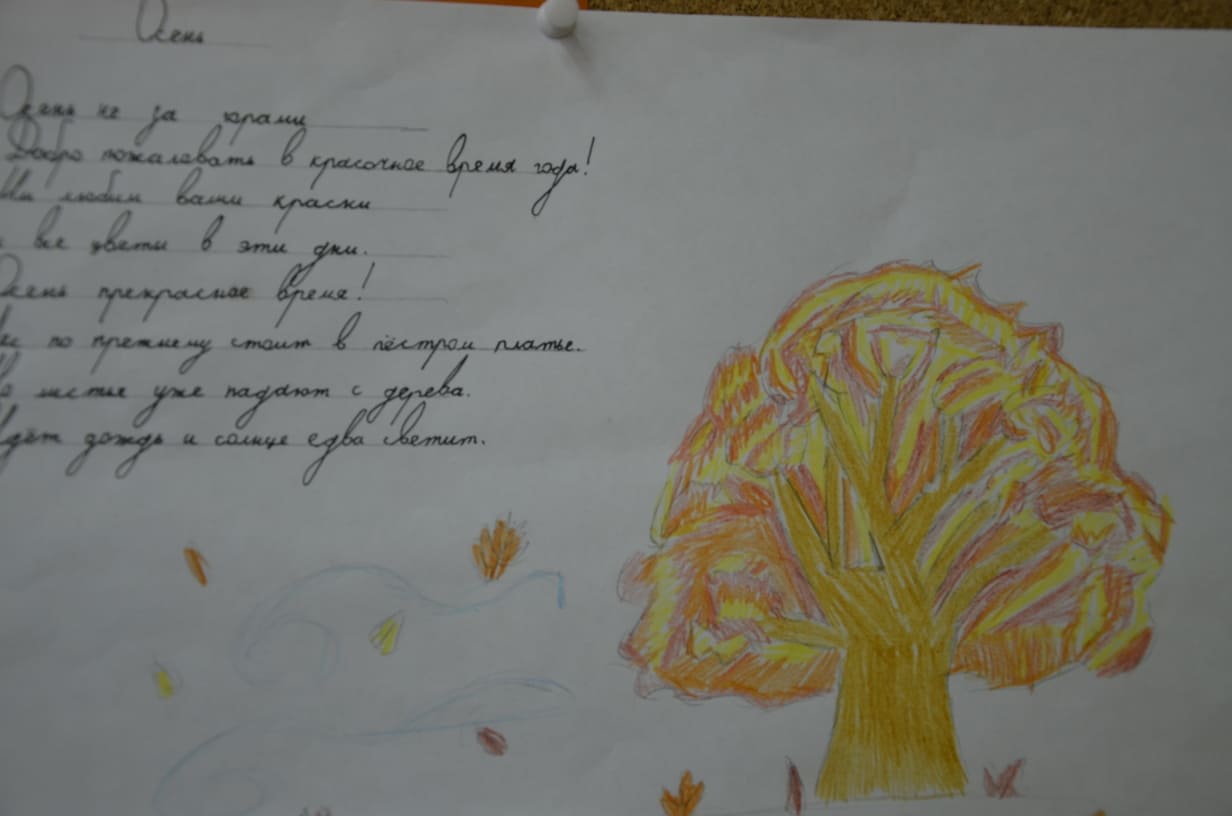 Осень
Осень не за юрами
Добро пожаловать в красочное время года!
Мы любим ваши краски
все цветы в эти дни.
Осень прекрасное время!
Лес по прежнему стоит в пёстром платье.
листье уже падают с дерева.
Идёт дождь и солнце едва светит.